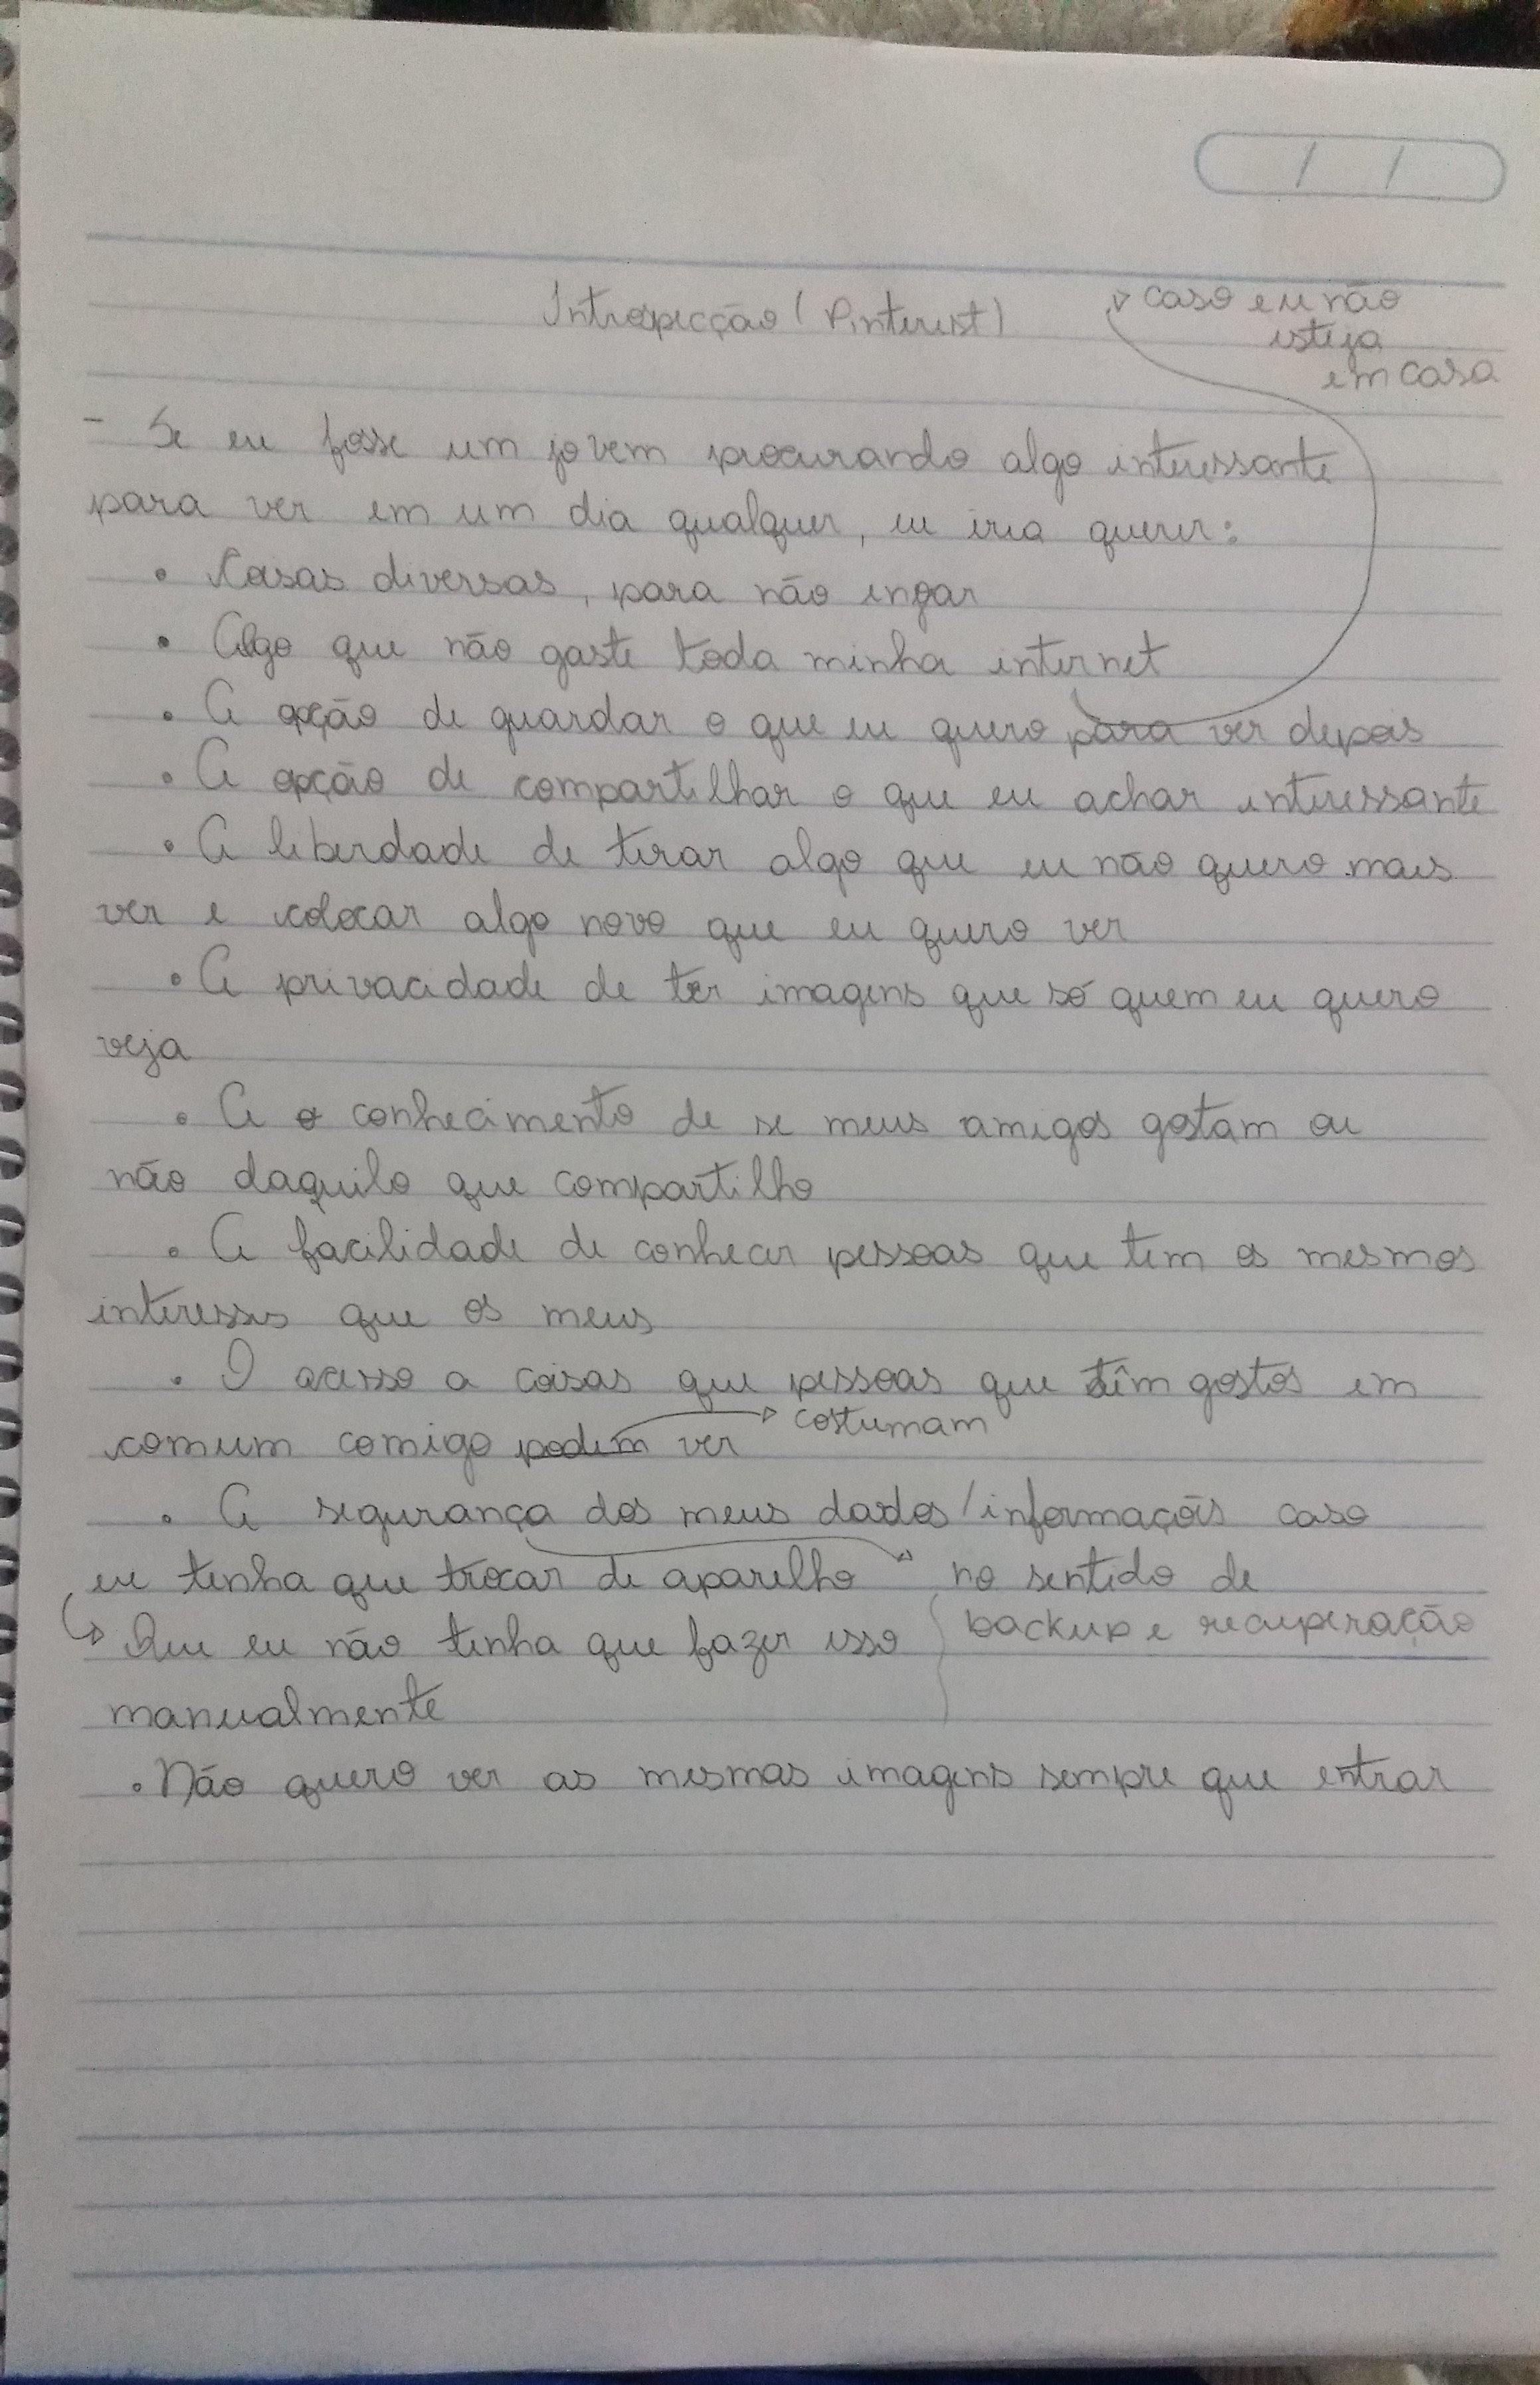 Introspecção (Pinterest)
caso eu não
esteja
em casa
- Se eu fosse um jovem procurando algo interessante
para ver em um dia qualquer, eu iria querer:
• Coisas diversas, para não enjoar
• Algo que não gaste toda minha internet
• A opção de guardar o que eu quero para ver depois
• A opção de compartilhar o que eu achar interessante
• A liberdade de tirar algo que eu não quero mais
ver e colocar algo novo que eu quero ver
• A privacidade de ter imagens que só quem eu quero
veja
• A o conhecimento de se meus amigos gostam ou
não daquilo que compartilho
• A facilidade de conhecer pessoas que tem os mesmos
interesses que os meus
• O acesso a coisas que pessoas que têm gostos em
comum comigo podem ver costumam
• A segurança dos meus dados/informações caso
eu tenha que trocar de aparelho no sentido de
backup e recuperação
Que eu não tenha que fazer isso
manualmente
• Não quero ver as mesmas imagens sempre que entrar